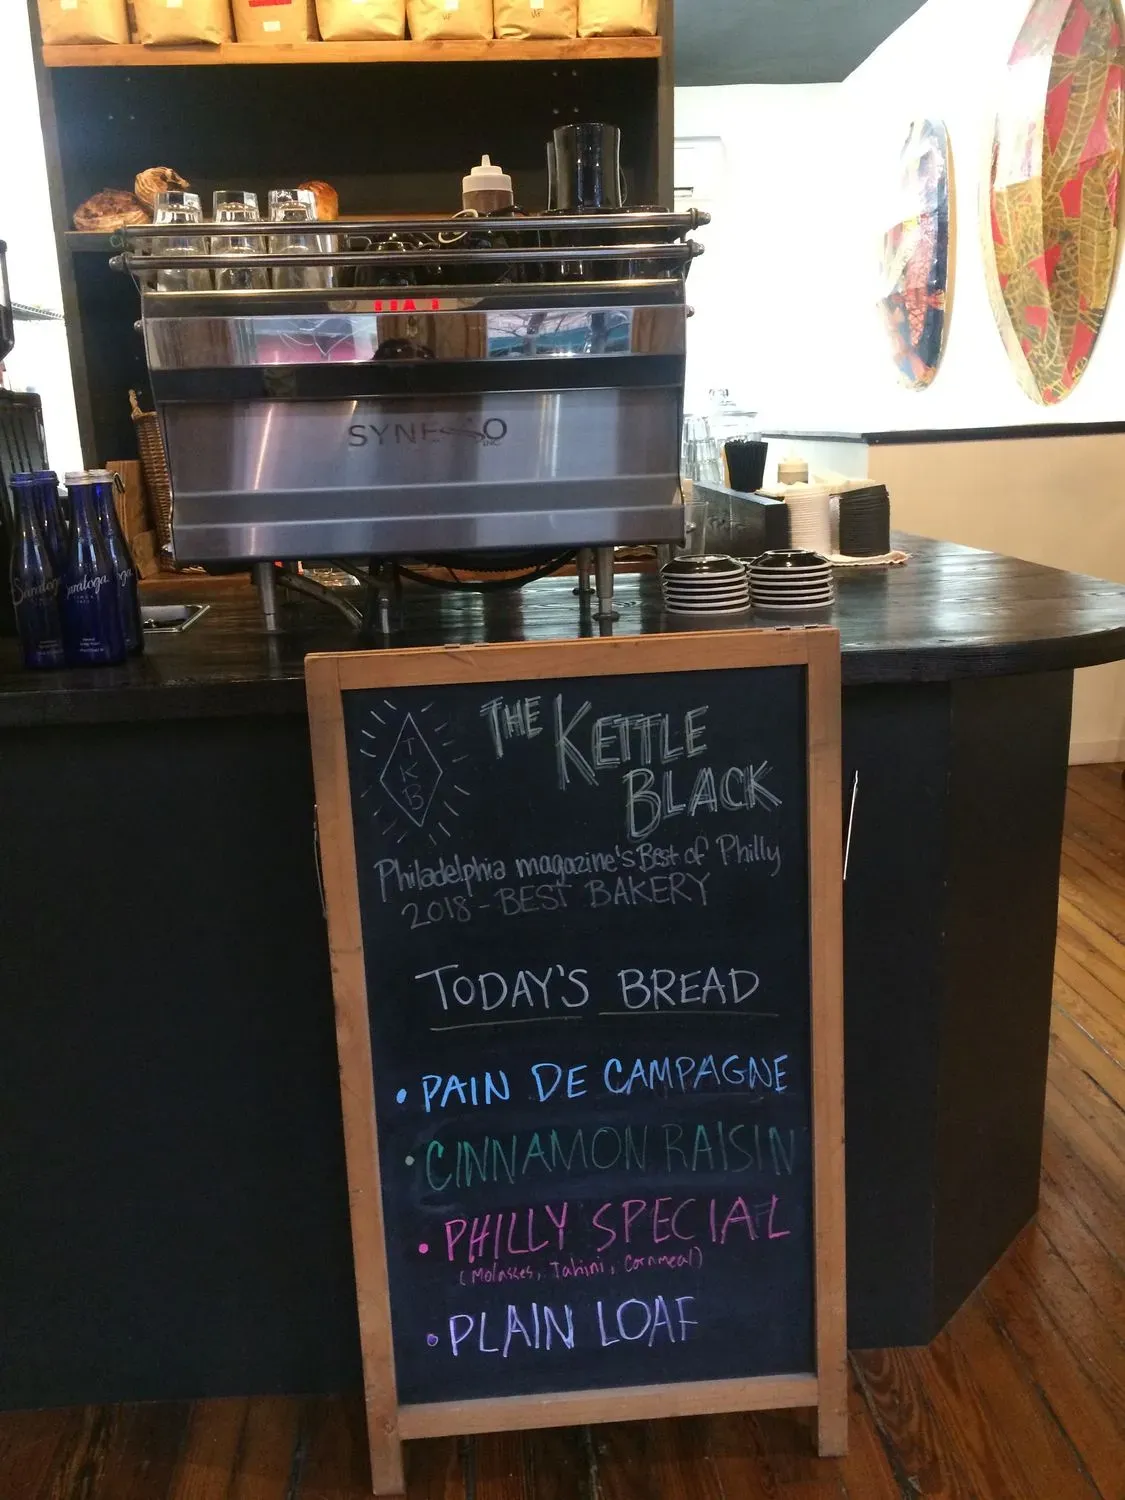 SYNESSO
INC
Saratoga
Saratoga
THE KETTLE
BLACK
TKB
Philadelphia magazine's Best of Philly
2018 - BEST BAKERY
TODAY'S BREAD
• PAIN DE CAMPAGNE
• CINNAMON RAISIN
• PHILLY SPECIAL
(Molasses, Tahini, Cornmeal)
• PLAIN LOAF